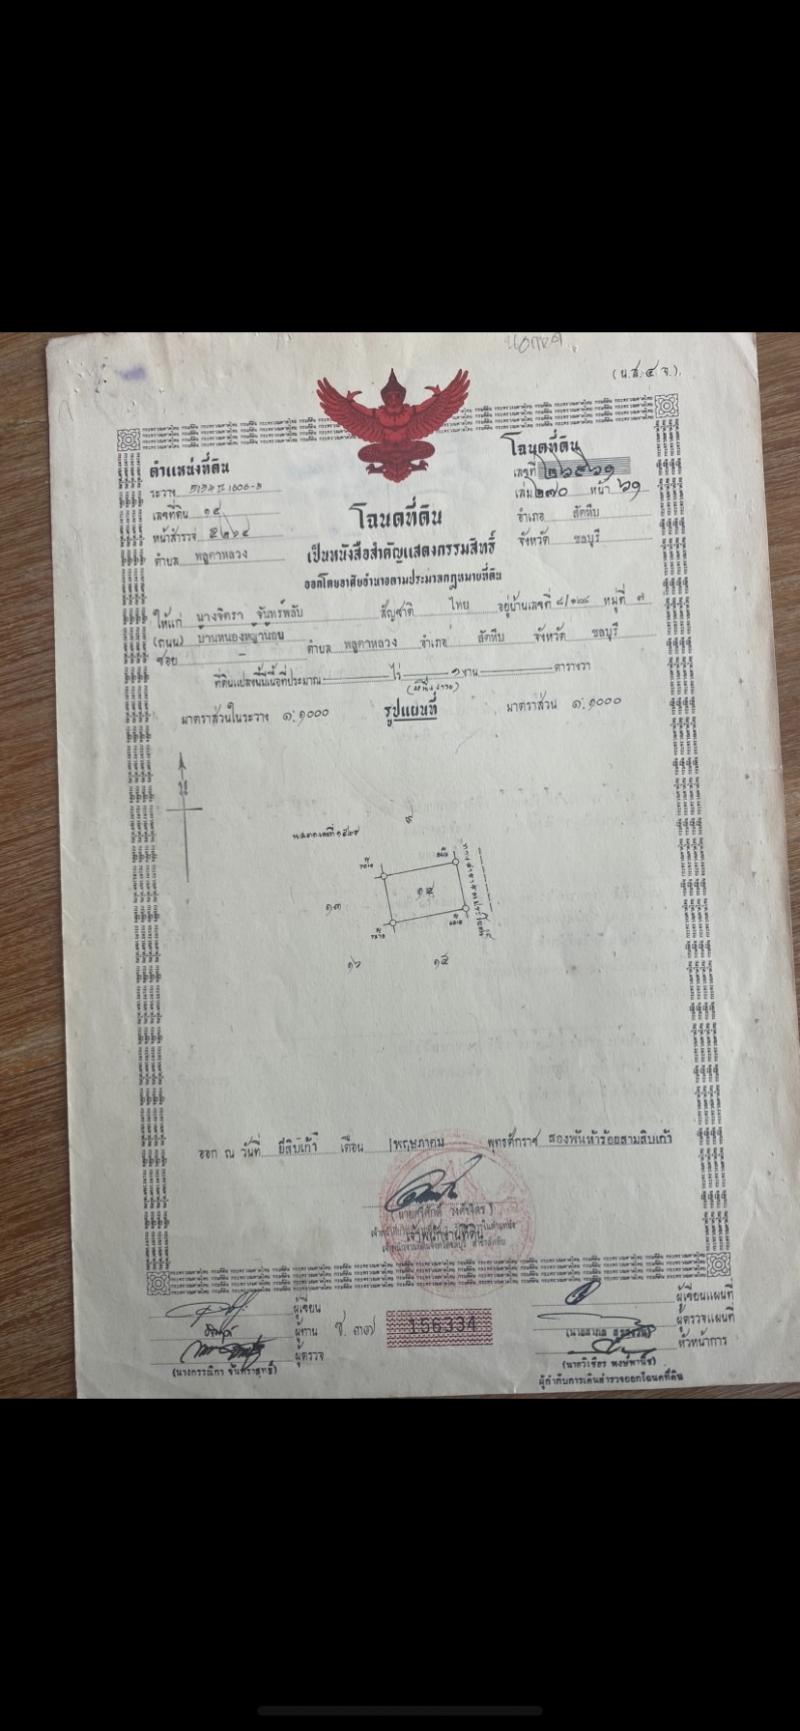 (น.ส.๔ จ.)
ตำแหน่งที่ดิน
ระวาง
เลขที่ดิน ๑๔
หน้าสำรวจ ๕๒๖๔
ตำบล พลูตาหลวง
โฉนดที่ดิน
เลขที่ ๒๖๕๖๑
เล่ม ๒๗๐ หน้า ๖๑
อำเภอ สัตหีบ
จังหวัด ชลบุรี
โฉนดที่ดิน
เป็นหนังสือสำคัญแสดงกรรมสิทธิ์
ออกโดยอาศัยอำนาจตามประมวลกฎหมายที่ดิน
ให้แก่ นางจิตรา จันทร์พลับ สัญชาติ ไทย อยู่บ้านเลขที่ หมู่ที่ ๗
(ถนน) บ้านหนองหญ้าน้อย ตำบล พลูตาหลวง อำเภอ สัตหีบ จังหวัด ชลบุรี
ซอย -
ที่ดินแปลงนี้มีเนื้อที่ประมาณ ไร่ ๑ งาน ตารางวา
(หนึ่งงาน)
มาตราส่วนในระวาง ๑:๑๐๐๐ รูปแผนที่ มาตราส่วน ๑:๑๐๐๐
น
๑๓
๑๔
๑๖
๑๕
ออก ณ วันที่ ยี่สิบเก้า เดือน พฤษภาคม พุทธศักราช สองพันห้าร้อยสามสิบเก้า
เจ้าพนักงานที่ดิน
ผู้เขียน
ผู้ทาน
ผู้ตรวจ
(นางกรรณิกา จันทราสุทธิ์)
ช. ๓๗
156334
ผู้เขียนแผนที่
ผู้ตรวจแผนที่
หัวหน้าการ
(นายวิเชียร พงษ์พานิช)
ผู้กำกับการเดินสำรวจออกโฉนดที่ดิน